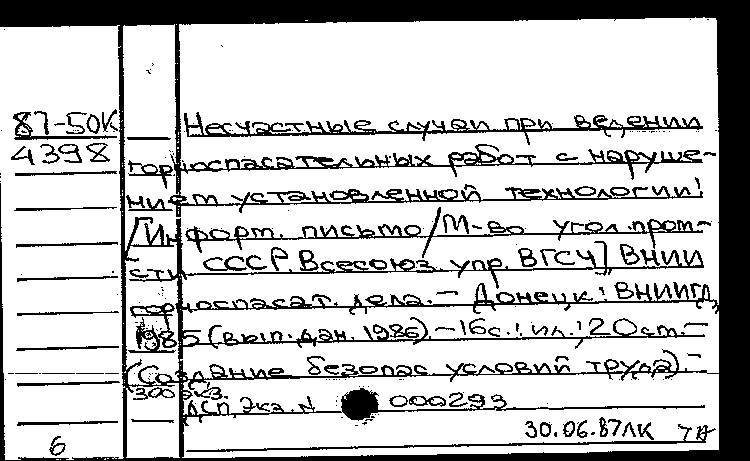 87-50К Несчастные случаи при ведении
4398 горноспасательных работ с наруше-
нием установленной технологии:
[Информ. письмо/М-во угол. пром-
сти СССР. Всесоюз. упр. ВГСЧ] ВНИИ
горноспасат. дела. – Донецк: ВНИИГД,
1985 (вып. дан. 1986). – 16с.: ил.; 20см. –
(Создание безопас. условий труда). –
300 экз.
ДСП. Экз. N 000293
30.06.87ЛК
6